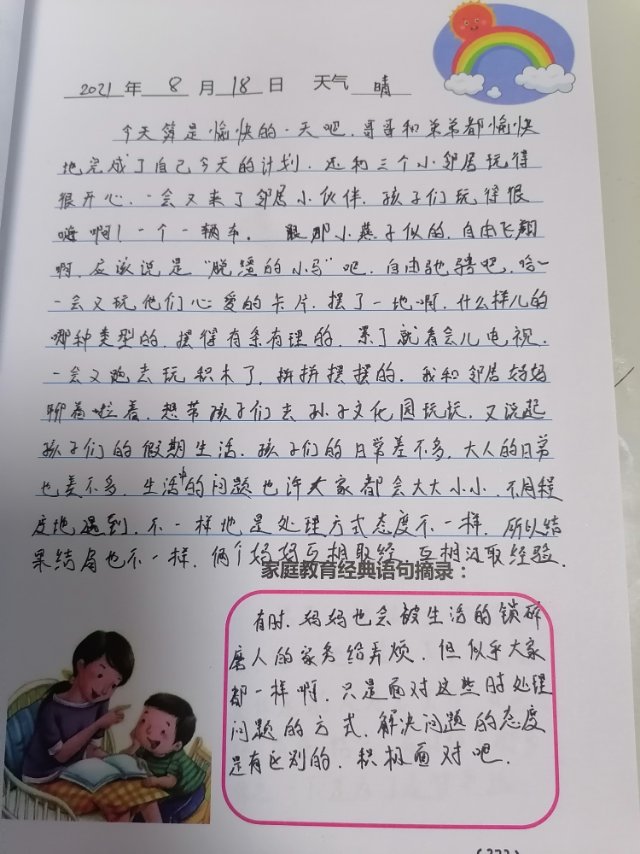 2021 年 8 月 18 日 天气 晴
今天算是愉快的一天吧.哥哥和弟弟都愉快
地完成了自己今天的计划.还和三个小邻居玩得
很开心.一会又来了邻居小伙伴.孩子们玩得很
嗨啊!一个一辆车.跟那小燕子似的.自由飞翔
啊.应该说是"脱缰的小马"吧.自由驰骋吧.哈一
一会又玩他们心爱的卡片.摆了一地啊.什么样儿的
哪种类型的.摆得有条有理的.累了就看会儿电视.
一会又跑去玩积木了.拼拼摆摆的.我和邻居妈妈
聊着拉着.想带孩子们去孙子文化园玩玩.又说起
孩子们的假期生活.孩子们的日常差不多.大人的日常
也差不多.生活中的问题也许大家都会大大小小.不同程
度地遇到.不一样地是处理方式态度不一样.所以结
果结局也不一样.俩个妈妈互相取经.互相汲取经验.
家庭教育经典语句摘录:
有时.妈妈也会被生活的锁碎
磨人的家务给弄烦.但似乎大家
都一样啊.只是面对这些时处理
问题的方式.解决问题的态度
是有区别的.积极面对吧.